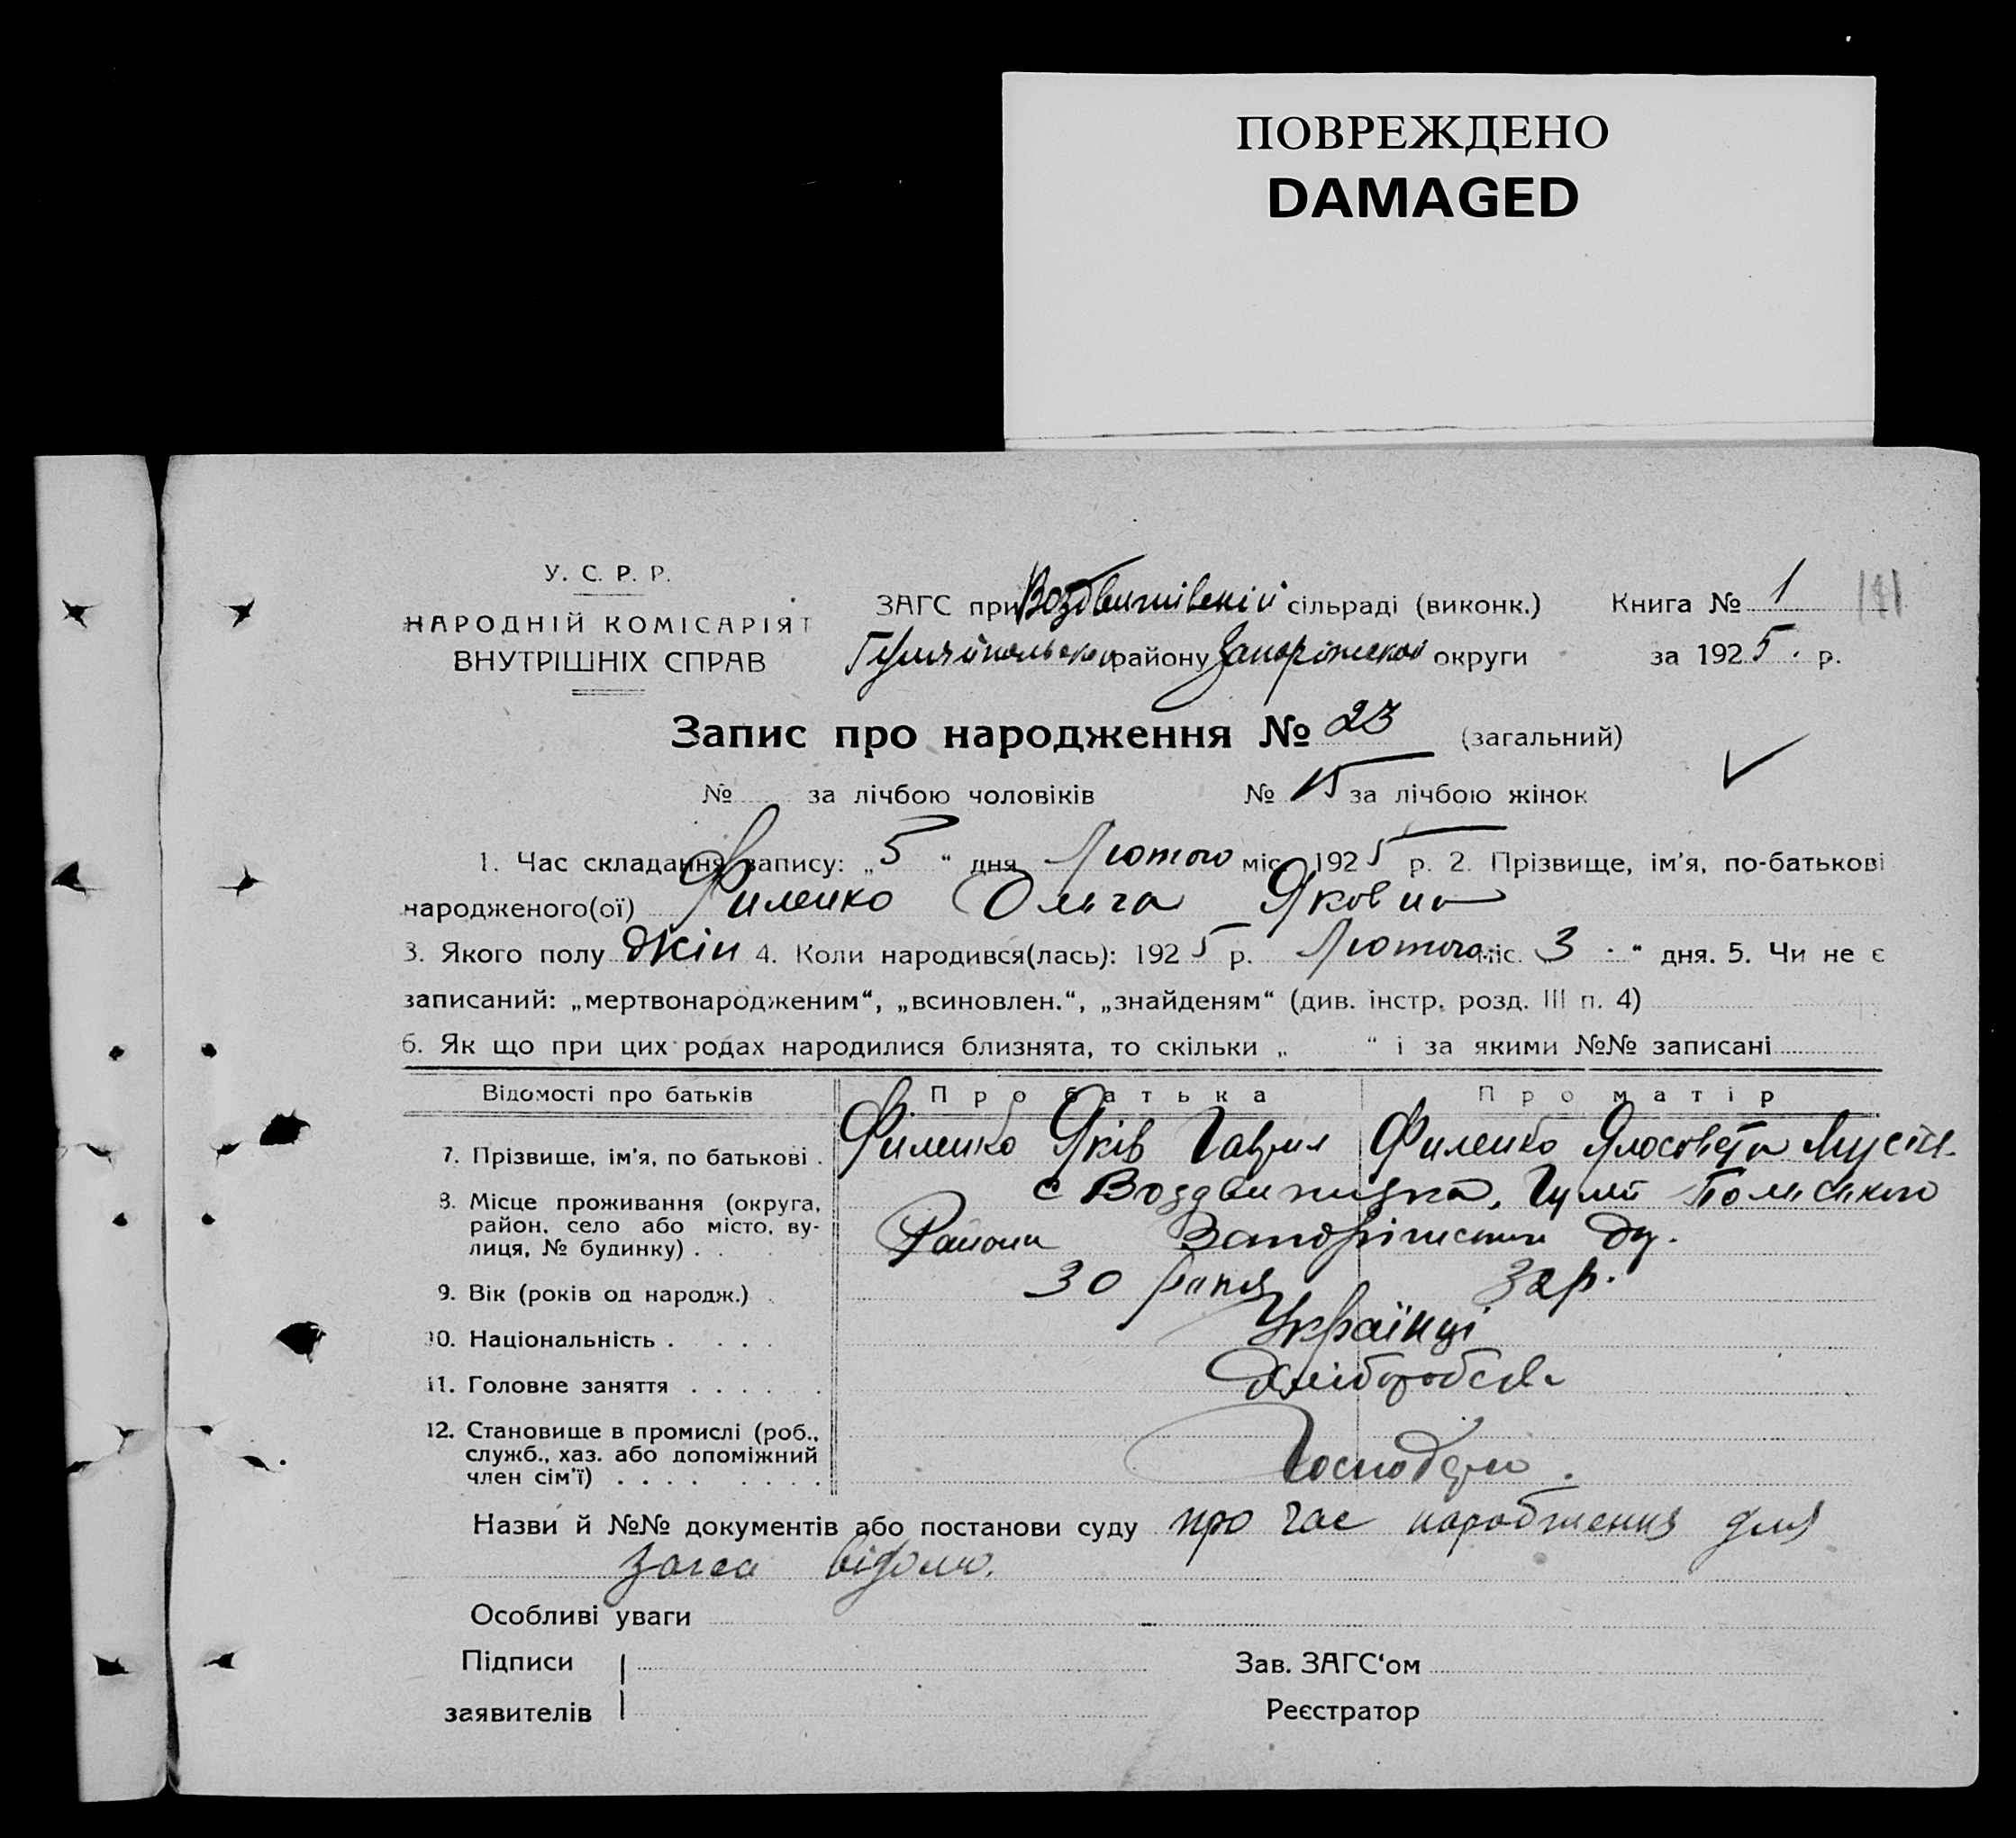 ПОВРЕЖДЕНО
DAMAGED
У. С. Р. Р.
НАРОДНІЙ КОМІСАРІЯТ
ВНУТРІШНІХ СПРАВ
ЗАГС при Воздвижівській сільраді (виконк.) Книга № 1
Гуляйпольского району Запоріжскої округи за 1925. р.
Запис про народження № 23 (загальний)
№ за лічбою чоловіків № 15 за лічбою жінок
1. Час складання запису: „5“ дня Лютого міс. 1925 р. 2. Прізвище, ім'я, по-батькові
народженого(ої) Филенко Ольга Яковна
3. Якого полу жін 4. Коли народився(лась): 1925 р. Лютого міс. 3 “ дня. 5. Чи не є
записаний: „мертвонародженим“, „всиновлен.“, „знайденям“ (див. інстр. розд. III п. 4)
6. Як що при цих родах народилися близнята, то скільки „ “ і за якими №№ записані
Відомості про батьків Про батька Про матір
7. Прізвище, ім'я, по батькові . Филенко Яків Гаврил Филенко Мусіи.
8. Місце проживання (округа, район, село або місто, вулиця, № будинку) . . с Воздвижка, Гуляй Польского
Района Запоріжскои Ок.
9. Вік (років од народж.) . 30 років 32 р.
10. Національність . . . . Українці
11. Головне заняття . . . . . Хліборобств.
12. Становище в промислі (роб., служб., хаз. або допоміжний член сім'ї) . . . . . . . . Господарі.
Назви й №№ документів або постанови суду про час народження для
загса відомо.
Особливі уваги
Підписи Зав. ЗАГС‘ом
заявителів Реєстратор